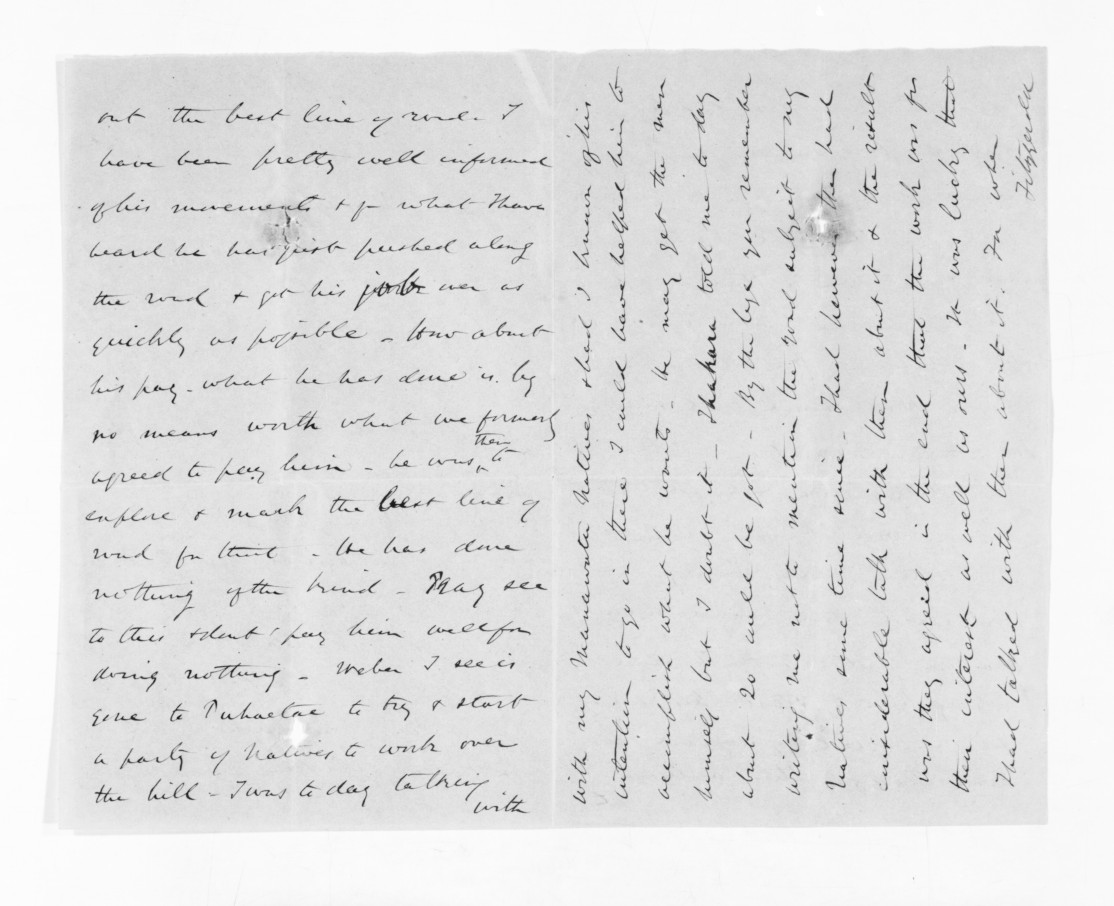 out the best line of road. I
have been pretty well informed
of his movements & fr what I have
heard he has just pushed along
the road & got his job over as
quickly as possible - Now about
his pay - what he has done is by
no means worth what we formerly
agreed to pay him - he was then to
explore & mark the best line of
road for that - He has done
nothing of the kind - Pray see
to this & dont pay him well for
doing nothing - Weber I see is
gone to Puhaetae to try & start
a party of Natives to work over
the hill - I was to day talking
with
with my Manawatu Natives & had I known of his
intention to go in there I could have helped him to
accomplish what he wants - He may get the men
himself but I doubt it - Ihakara told me to day
about 20 could be got - By the bye you remember
writing me not to mention the road subject to my
Natives some time since - I had however then had
considerable talk with them about it & the result
was they agreed in the end that the work was for
their interest as well as ours - It was lucky that
I had talked with them about it. For when
Fitzgerald